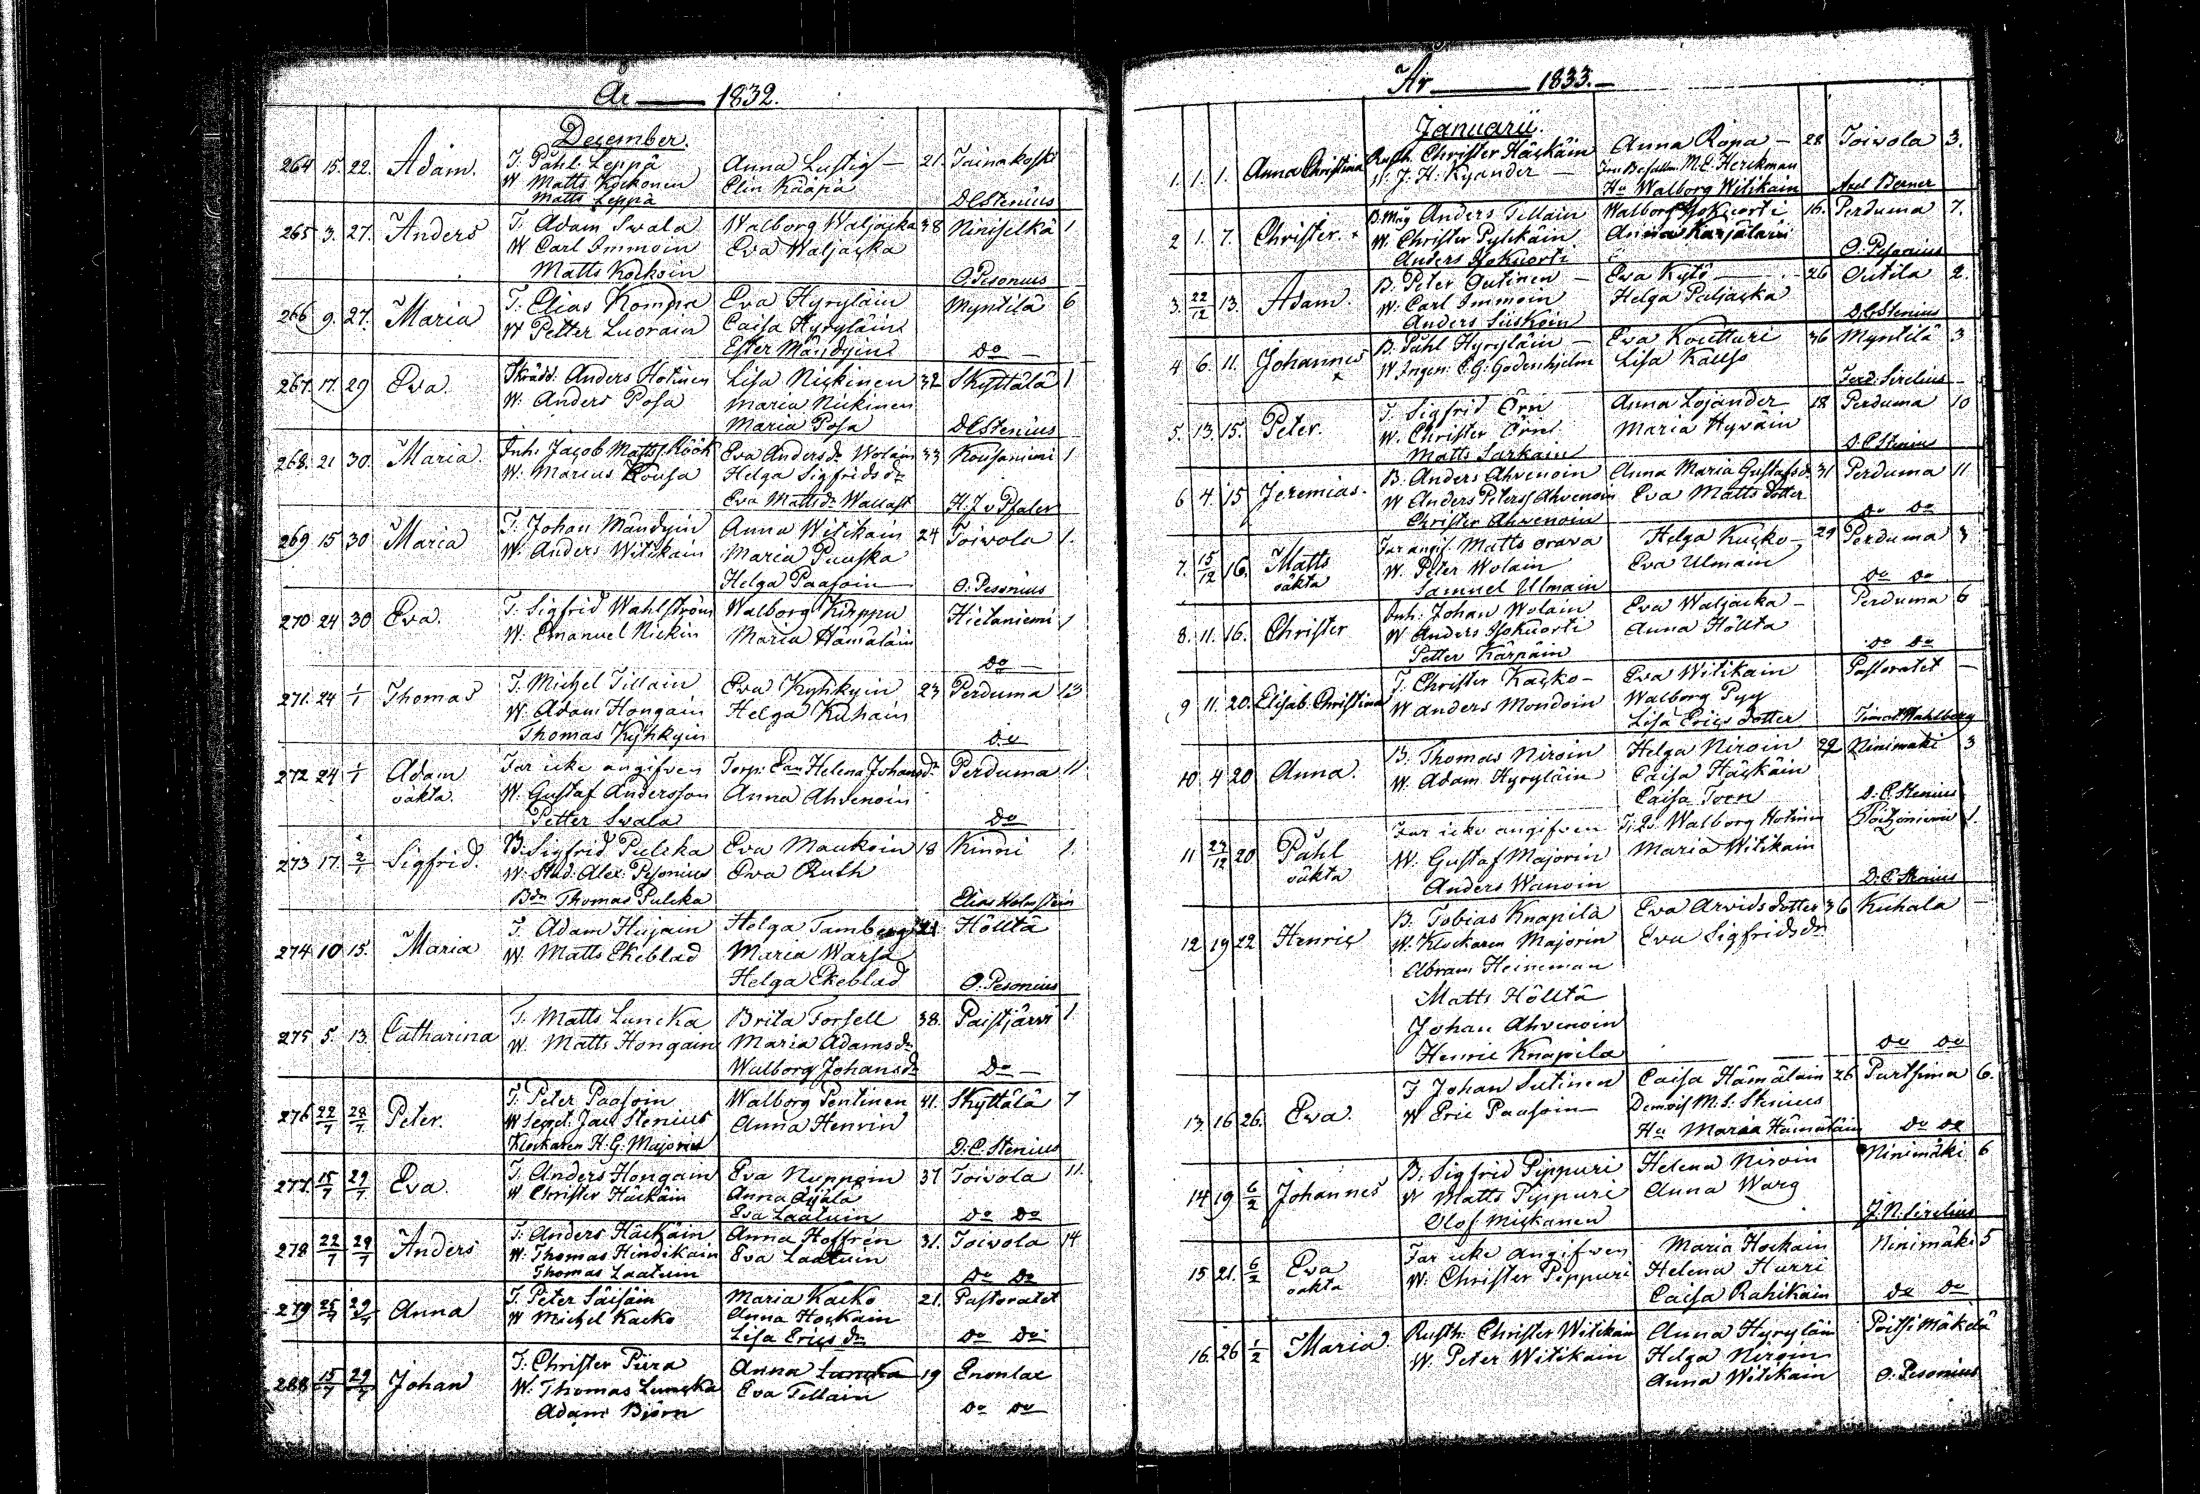 År 1832.
December.
264 15. 22. Adam. T. Påhl Leppä Anna Lustig 21. Tainakoski
W Matts Kockonen Elin Kääpä
Matts Leppä DCStenius
265 3. 27. Anders T. Adam Swala Walborg Waljacka 38 Niniselkä 1
W Carl Immoin Eva Waljacka
Matts Kockoin O. Pesonius
266 9. 27. Maria T. Elias Kompa Eva Hyryläin Myntilä 6
W Petter Luorain Caisa Hyryläin
Ester Mändyin Do
267 17. 29 Eva. Skrädd. Anders Hotinen Lisa Nickinen 32 Skyttälä 1
W. Anders Posa Maria Nickinen
Maria Posa DCStenius
268. 21 30. Maria. Inh. Jacob Matts. Röök Eva Andersdr Wolain 33 Kousaniemi 1
W. Marcus Rousa Helga Sigfridsdr
Eva Mattsdr Wallast H. J v Pfaler
269 15 30 Maria T. Johan Mändyin Anna Witikain 24 Toivola 1.
W. Anders Witikain Maria Puuska
Helga Paasoin O. Pesonius
270 24 30 Eva. T. Sigfrid Wahlström Walborg Kirppu Hietaniemi 1
W. Emanuel Nickin Maria Hämäläin
Do
271. 24 1/1 Thomas T. Michel Tillain Eva Kyhkyin 23 Perduma 13
W. Adam Hongain Helga Kuhain
Thomas Kyhkyin Do
272 24 1/1 Adam Far icke angifven Torp. Enn Helena Johansdr Perduma 11
oäkta. W. Gustaf Andersson Anna Ahvenoin
Petter Swala Do
273 17. 2/1 Sigfrid. B. Sigfrid Pulcka Eva Maukoin 18 Kinni 1
W. Stud. Alex. Pesonius Eva Ruth
Bdn Thomas Pulcka Elias Holmstein
274 10 15. Maria T. Adam Hujain Helga Tamberg 21 Hölltä
W. Matts Ekeblad Maria Warsa
Helga Ekeblad O. Pesonius
275 5. 13. Catharina T. Matts Luncka Brita Forsell 38. Paistjärvi 1
W. Matts Hongain Maria Adamsdr
Walborg Johansdr Do
276 22/7 28/7 Peter. T. Peter Paasoin Walborg Pentinen 41. Skyttälä 7
W Secret. Jac Stenius Anna Henrin
Klockaren H. G. Majorin D. C. Stenius
277. 15/7 29/7 Eva. T. Anders Hongain Eva Nuppoin 37 Toivola 11.
W Christer Häckäin Anna Ajala
Eva Laatuin Do Do
278 22/7 29/7 Anders T. Anders Häckäin Anna Hoffrén 31. Toivola 14
W. Thomas Hindikain Eva Laatuin
Thomas Laatuin Do Do
279 25/7 29/7 Anna T. Peter Säisäin Maria Kacko 21. Pastoratet
W Michel Kacko Anna Hockain
Lisa Ericsdr Do Do
280 15/7 29/7 Johan T. Christer Piira Anna Luncka 19 Enonlax
W. Thomas Luncka Eva Tillain
Adam Björn Do Do
År 1833.
Januarii.
1. 1. 1. Anna Christina Rusth. Christer Häckäin Anna Ropa 28 Toivola 3.
W. J. H. Kyander M. E. Herckman
Hu Walborg Witikain Axel Berner
2 1. 7. Christer. B. Måg Anders Tillain Walborg Isokuorti 16. Perduma 7.
W. Christer Pylckäin Anna Karjalain
Anders Isokuorti O. Pesonius
3. 22/12 13. Adam. B. Peter Outinen Eva Kytö 26 Outila 2.
W. Carl Immoin Helga Puljacka
Anders Siiskoin D. C. Stenius
4 6. 11. Johannes B. Påhl Hyryläin Eva Koutturi 36 Myntilä 3
W Ingen. C. G. Godenhjelm Lisa Kallso
Ferd. Sirelius
5. 13. 15. Peter. T. Sigfrid Örn Anna Lojander 18 Perduma 10
W. Christer Örn Maria Hyväin
Matts Sarkain D. C. Stenius
6 4. 15 Jeremias. B. Anders Ahvenoin Anna Maria Gustafsdr 31 Perduma 11
W Anders Peterss. Ahvenoin Eva Matts dotter
Christer Ahvenoin Do Do
7. 15/12 16. Matts Far angif. Matts Orava Helga Kucko 29 Perduma 3
oäkta W. Peter Wolain Eva Ulmain
Samuel Ulmain Do Do
8. 11. 16. Christer Inh. Johan Wolain Eva Waljacka Perduma 6
W Anders Isokuorti Anna Hölltä
Petter Kärpäin Do Do
9 11. 20. Elisab. Christina T. Christer Kacko Eva Witikain Pastoratet
W Anders Mondoin Walborg Pyy
Lisa Erics dotter Timot Wahlberg
10. 4 20 Anna. B. Thomas Niroin Helga Niroin 22 Ninimäki 3
W. Adam Hyryläin Caisa Häckäin
Caisa Toen D. C. Stenius
11 27/12 20 Påhl Far icke angifven Walborg Hotinen 1.
oäkta W. Gustaf Majorin Maria Witikain
Anders Wanoin D. C. Stenius
12 19 22 Henric B. Tobias Knapila Eva Arvidsdotter 36 Kuhala
W. Klockaren Majorin Eva Sigfridsdr
Abram Heineman
Matts Hölltä
Johan Ahvenoin
Henric Knapila Do Do
13. 16 26. Eva. T Johan Sutinen Caisa Hämäläin 26 Purtsima 6.
W Eric Paasoin Demois M. S. Stenius
Hu Maria Hämäläin Do Do
14 19 6/2 Johannes B. Sigfrid Pippuri Helena Niroin Ninimäki 6
W Matts Pippuri Anna Warg
Olof Mickanen J. N. Sirelius
15 21. 6/2 Eva Far icke angifven Maria Hockain Ninimäki 5
oäkta W. Christer Pippuri Helena Hurri
Caisa Rahikain Do Do
16. 26 1/2 Maria. Rusth. Christer Witikain Anna Hyryläin Poitsimäkelä
W. Peter Witikain Helga Niroin
Anna Witikain O. Pesonius